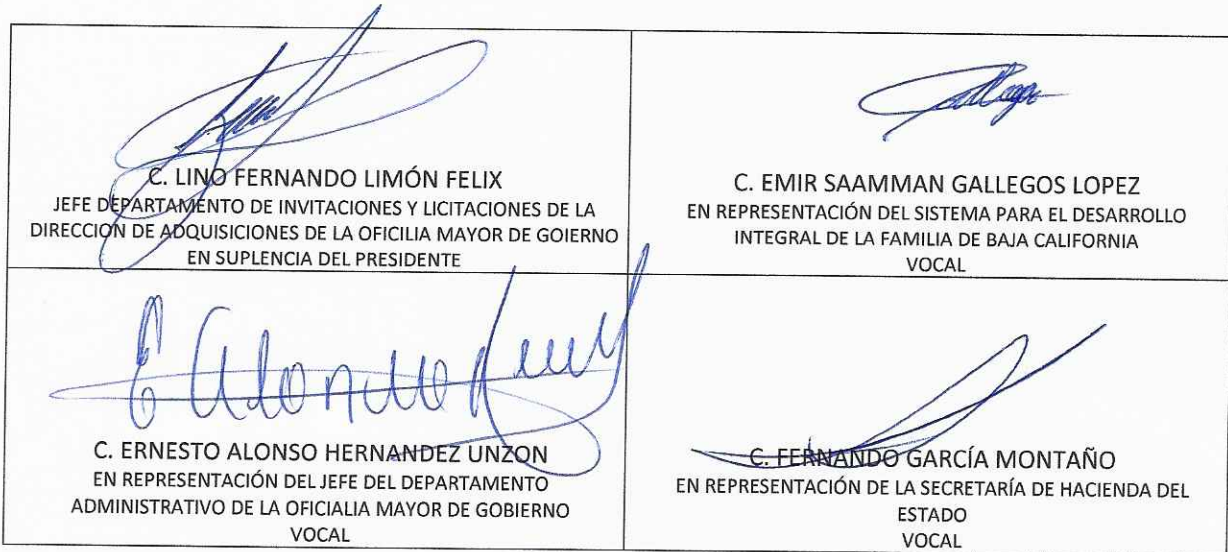 C. LINO FERNANDO LIMÓN FELIX
JEFE DEPARTAMENTO DE INVITACIONES Y LICITACIONES DE LA
DIRECCION DE ADQUISICIONES DE LA OFICILIA MAYOR DE GOIERNO
EN SUPLENCIA DEL PRESIDENTE
C. EMIR SAAMMAN GALLEGOS LOPEZ
EN REPRESENTACIÓN DEL SISTEMA PARA EL DESARROLLO
INTEGRAL DE LA FAMILIA DE BAJA CALIFORNIA
VOCAL
C. ERNESTO ALONSO HERNANDEZ UNZON
EN REPRESENTACIÓN DEL JEFE DEL DEPARTAMENTO
ADMINISTRATIVO DE LA OFICIALIA MAYOR DE GOBIERNO
VOCAL
C. FERNANDO GARCÍA MONTAÑO
EN REPRESENTACIÓN DE LA SECRETARÍA DE HACIENDA DEL
ESTADO
VOCAL